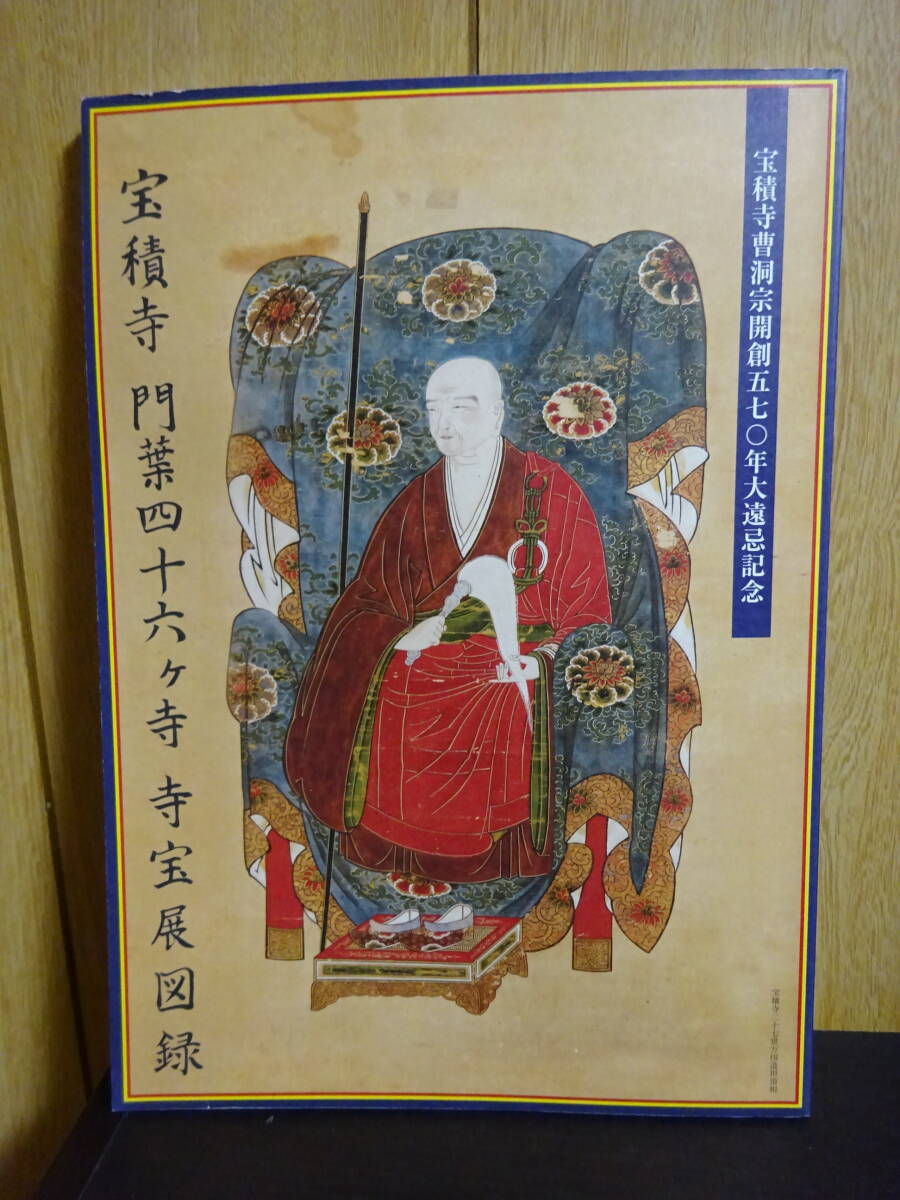 宝積寺曹洞宗開創五七〇年大遠忌記念
宝積寺 門葉四十六ヶ寺 寺宝展図録